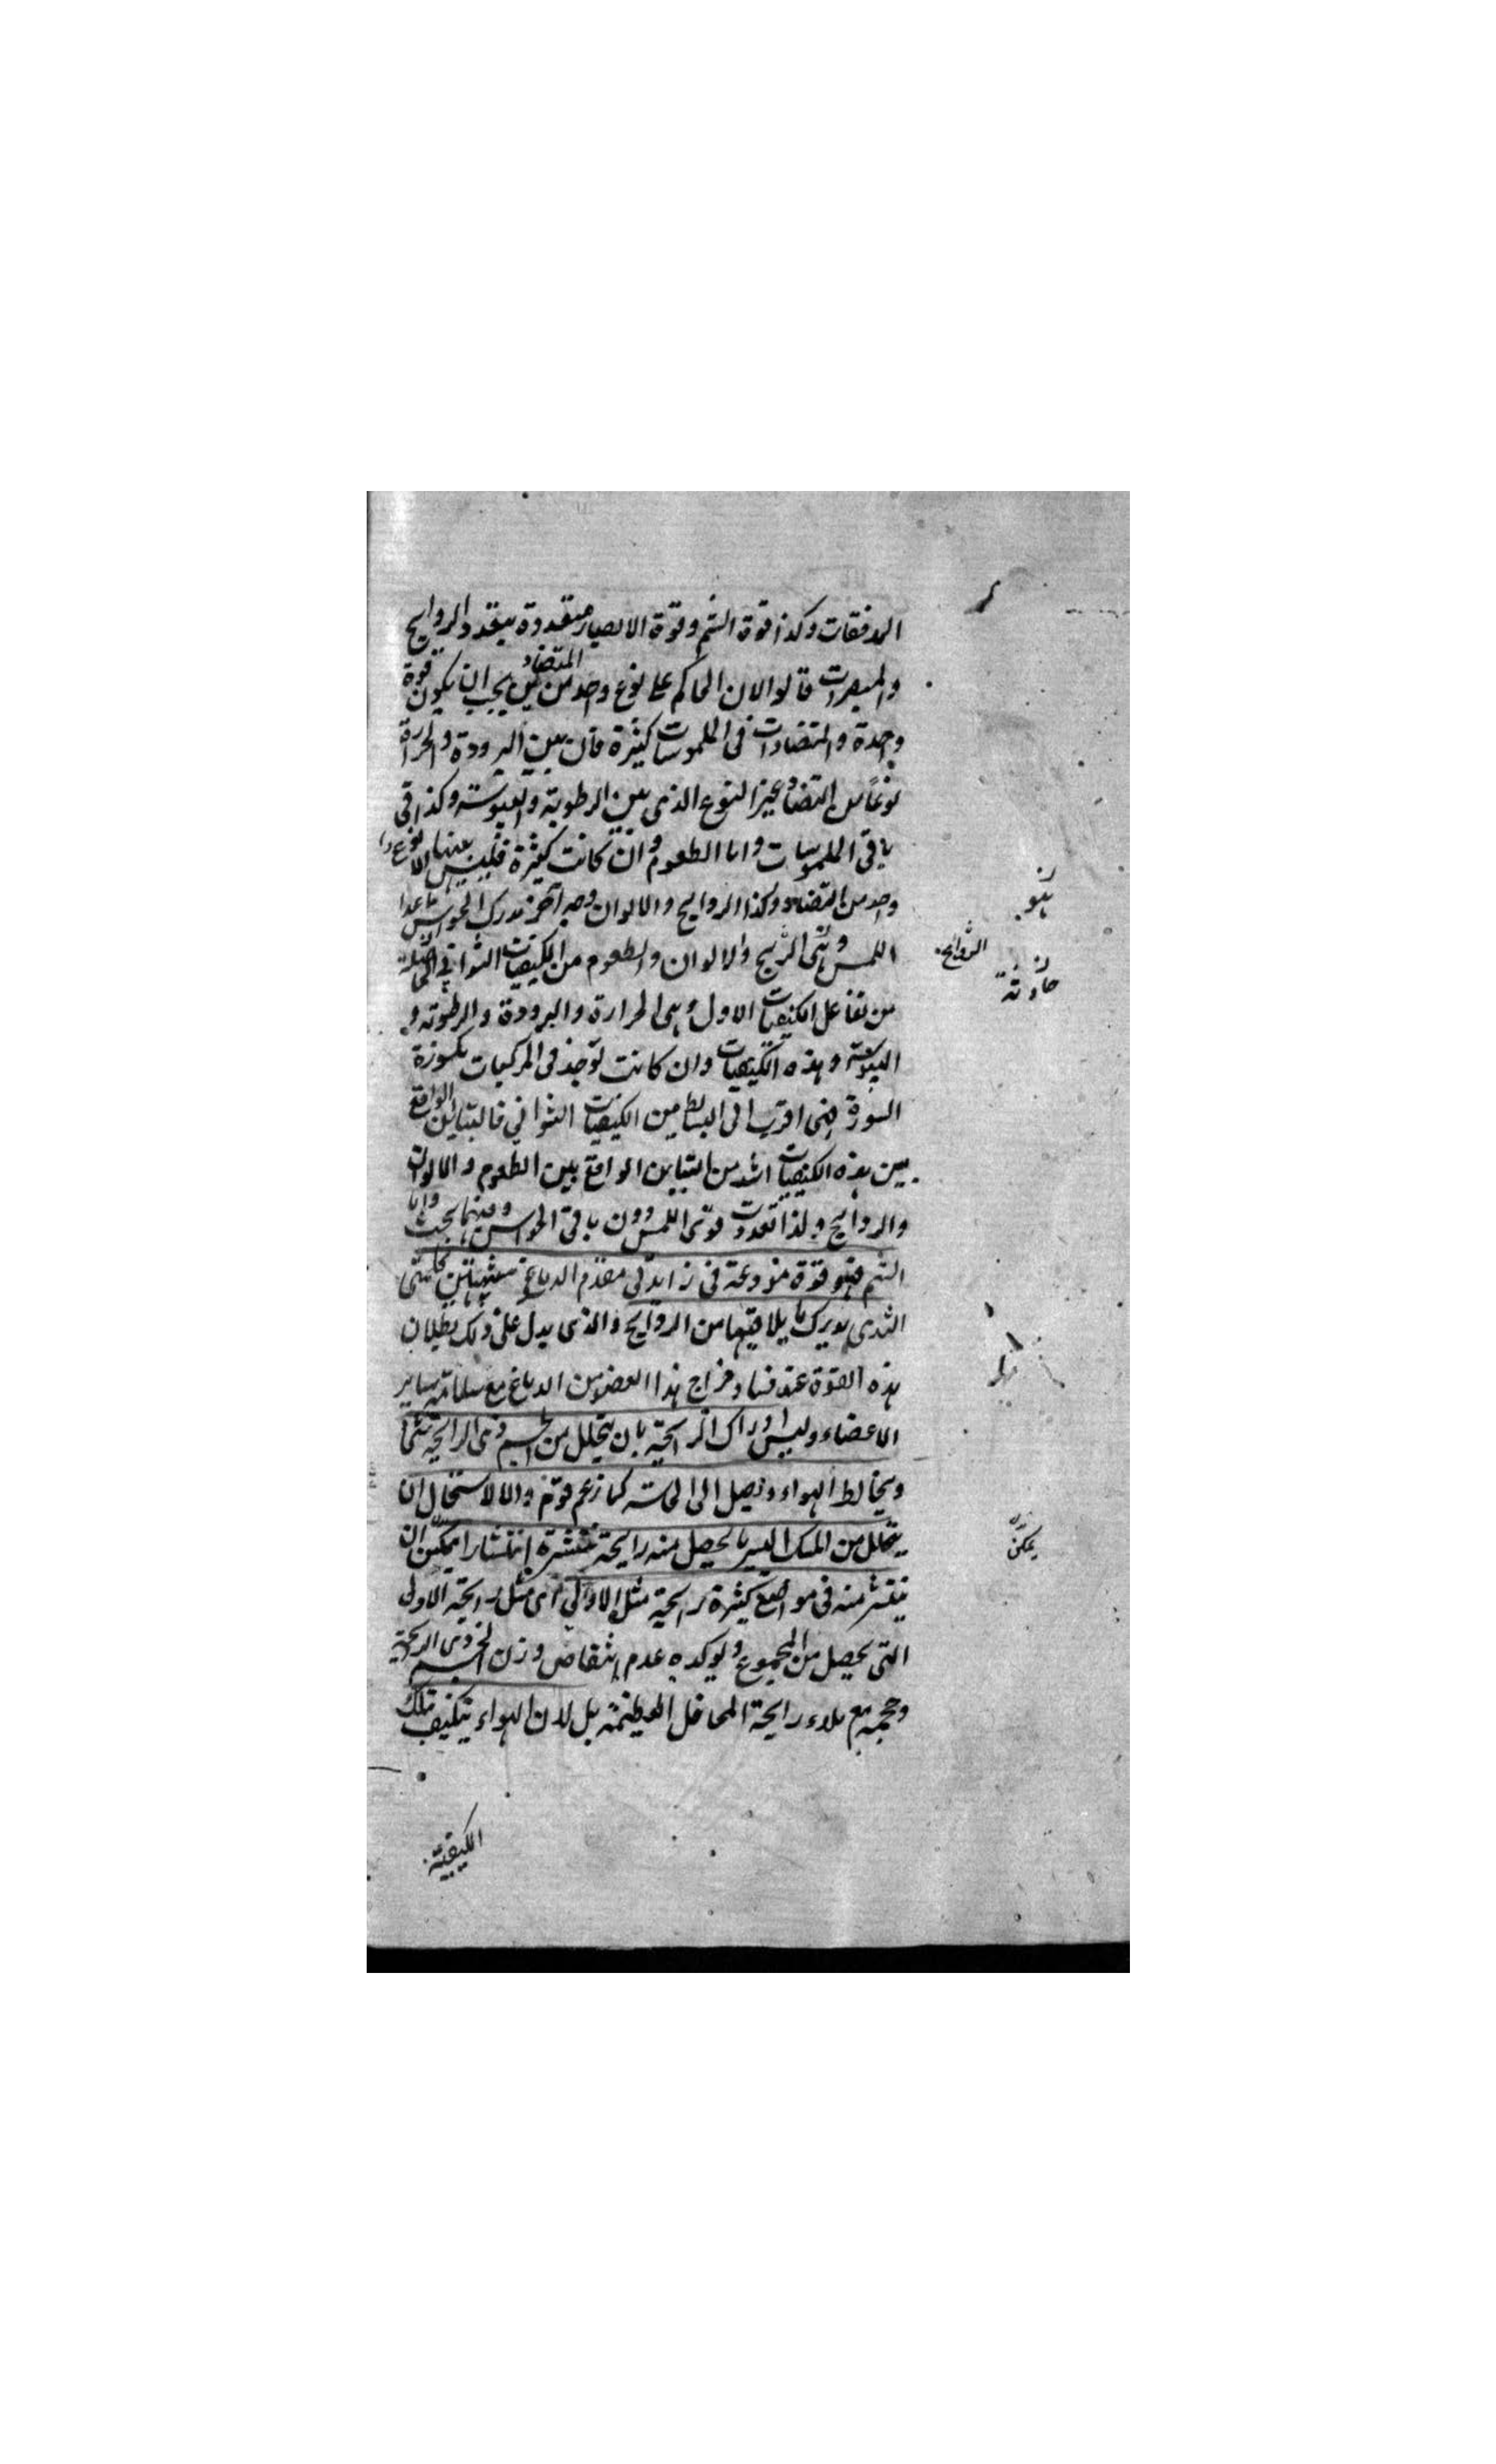 المذقات وكذا قوة الشم وقوة الابصار متعددة بتعدد الروايح
والمبصرات قالوا لان الحاكم على نوع واحد من المتضادين يجب ان يكون قوة
واحدة والمتضادات فى الملموسات كثيرة فان بين البرودة والحرارة
نوعًا من التضاد غير النوع الذى بين الرطوبة واليبوسة وكذا فى
باقى الملموسات واما الطعوم وان كانت كثيرة فليس بينها الا نوع
واحد من التضاد وكذا الروايح والالوان وجه آخر مدرك الحواس ما عدا
اللمس وهى الريح والالوان والطعوم من الكيفيات الثوانى الحاصلة
من تفاعل الكيفيات الاول وهى الحرارة والبرودة والرطوبة و
اليبوسة وهذه الكيفيات وان كانت توجد فى المركبات مكسورة
السورة فهى اقرب الى البسايط من الكيفيات الثوانى فالتباين الواقع
بين هذه الكيفيات اشد من التباين الواقع بين الطعوم والالوان
والروايح ولذا تعددت قوى اللمس دون باقى الحواس وفيهما بحث واما
الشم فهو قوة مودعة فى زايدتى مقدم الدماغ شبيهتين بحلمتى
الثدى يدرك ما يلاقيها من الروايح والذى يدل على ذلك بطلان
هذه القوة عند فساد مزاج هذا العضو من الدماغ مع سلامة ساير
الاعضاء وليس ادراك الرايحة بان يتحلل من الجسم ذى الرايحة شئ
ويخالط الهواء ويصل الى الحاسة كما زعم قوم والا لاستحال ان
يتحلل من المسك اليسير ما يحصل منه رايحة منتشرة انتشارا يمكن ان
ينتشر منه فى مواضع كثيرة رايحة مثل الاولى اى مثل رايحة الاولى
التى يحصل من المجموع ويوكده عدم انتقاص وزن الجسم ذى الرايحة
وحجمه مع ملاء رايحة المحافل العظيمة بل لان الهواء يتكيف بتلك
الكيفية
فهو
الروايح
يمكن